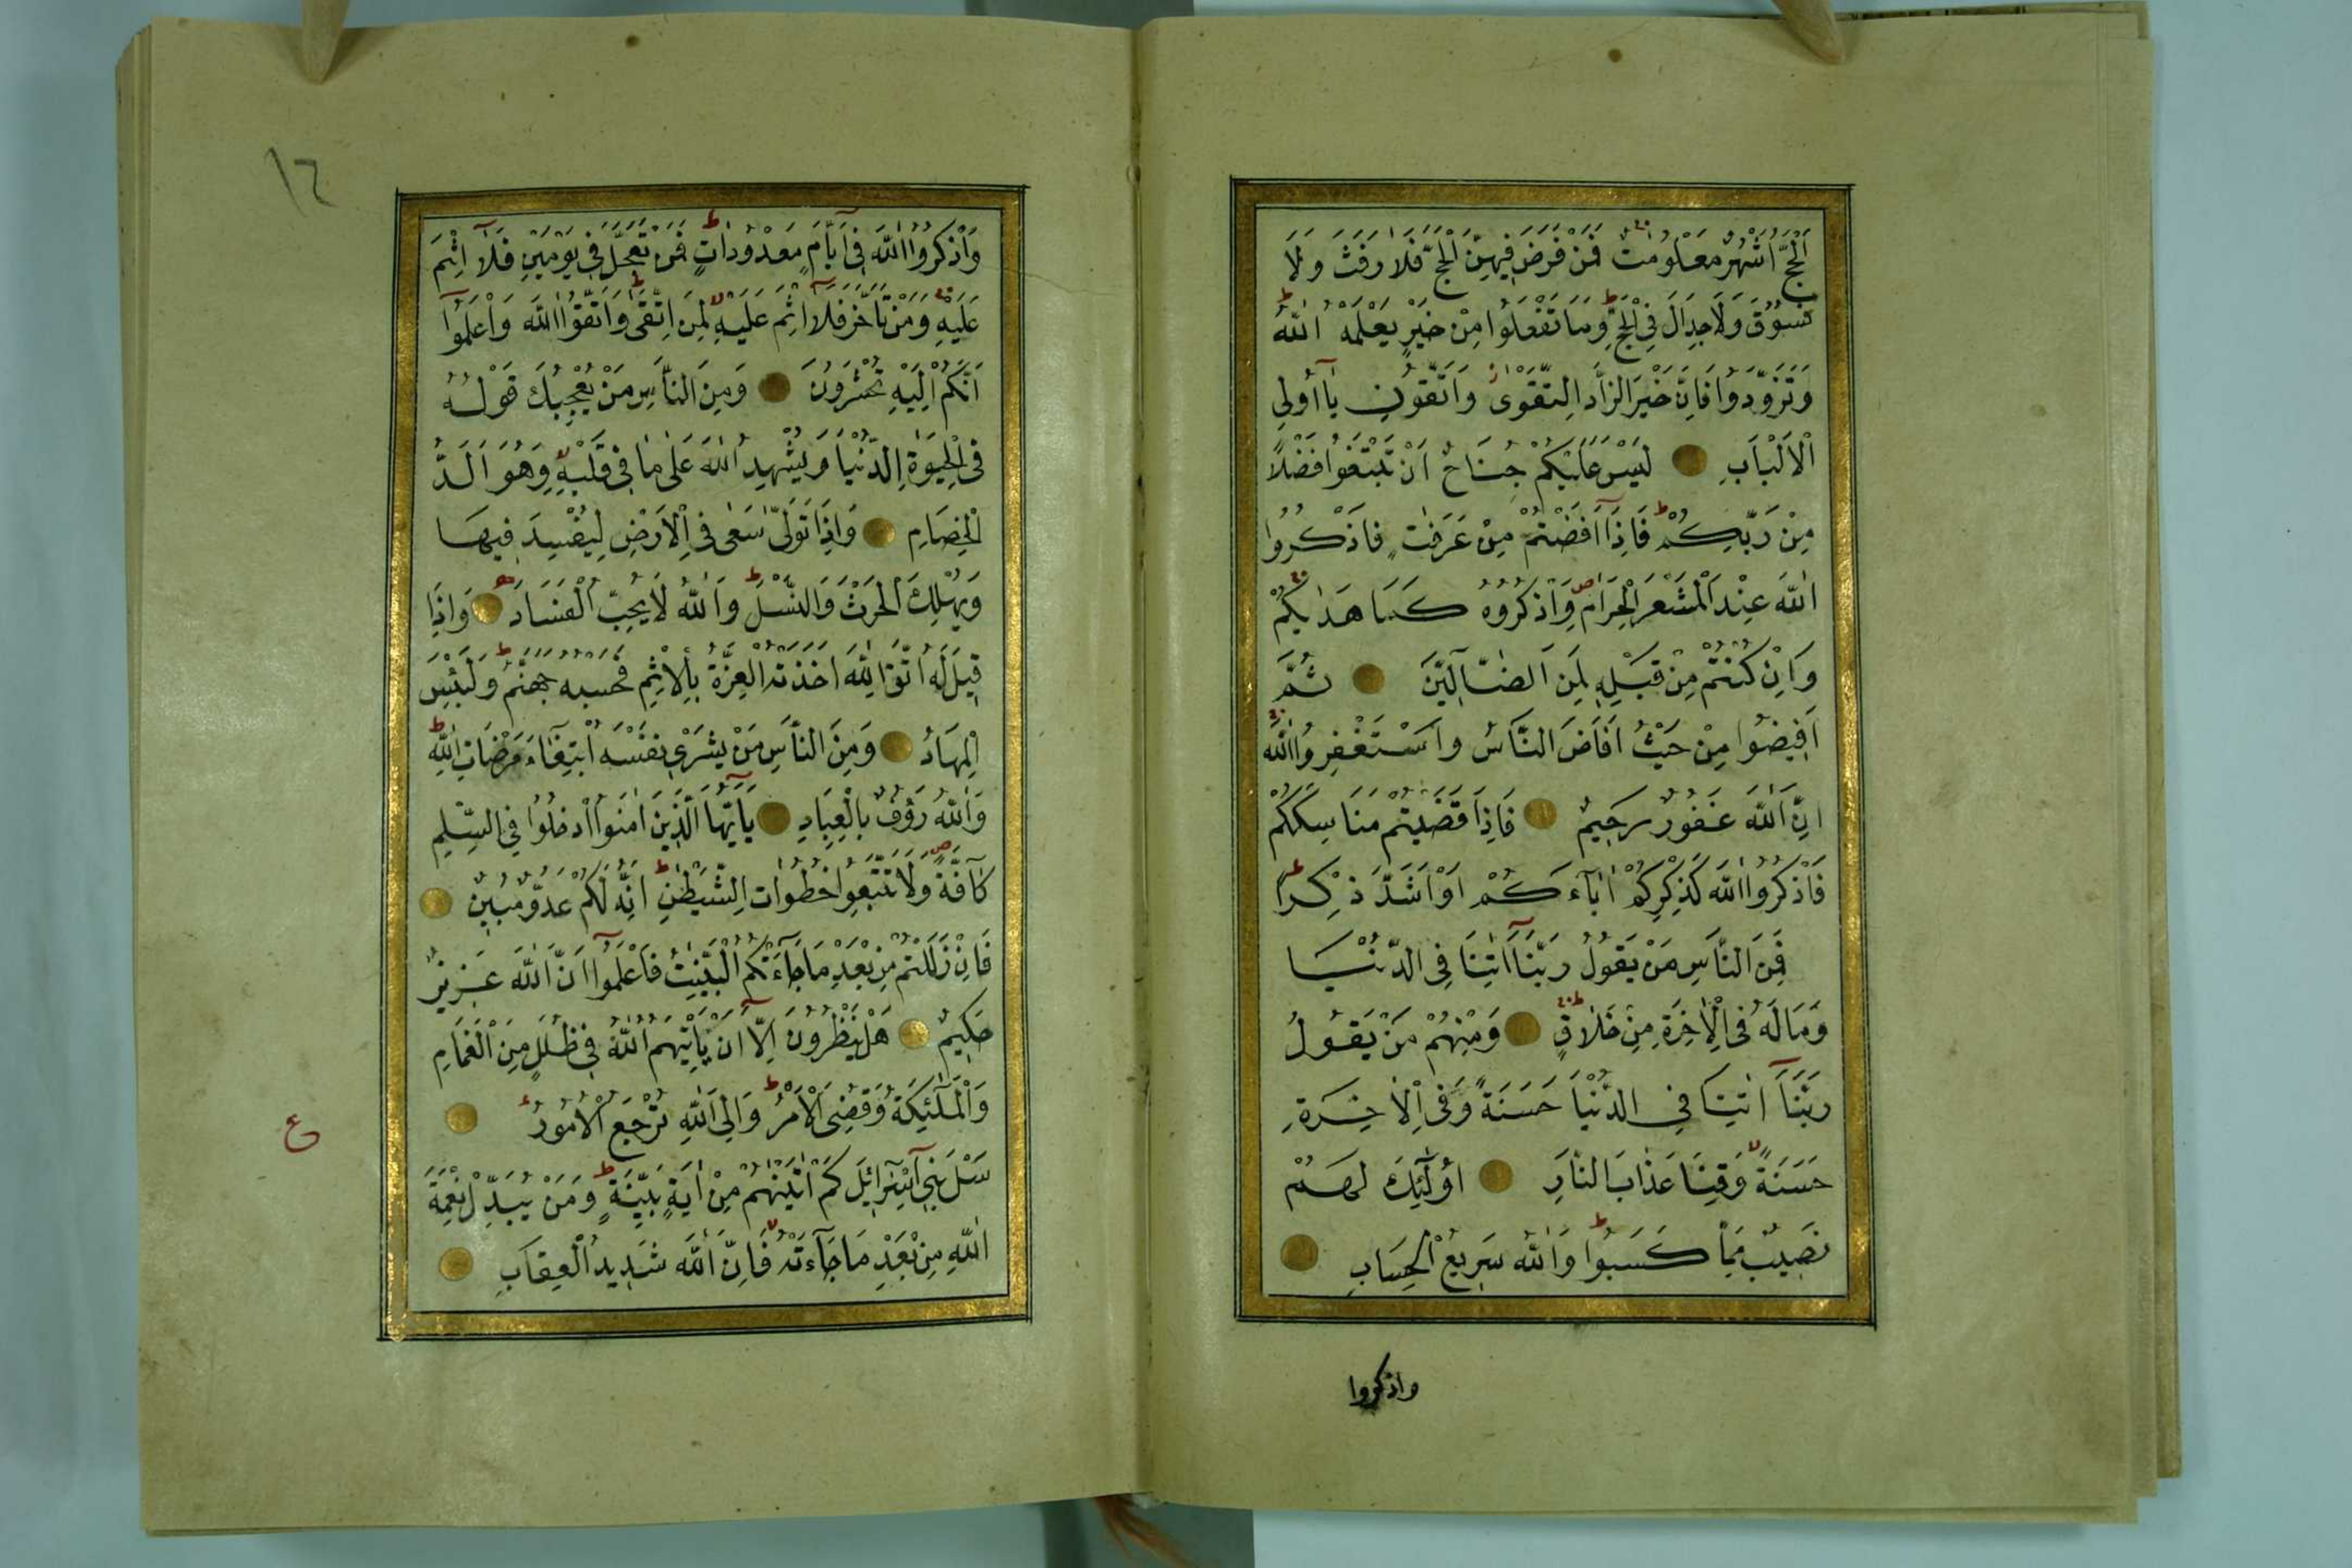 اَلْحَجُّ اَشْهُرٌ مَعْلُومٰتٌ فَمَنْ فَرَضَ فِيهِنَّ الْحَجَّ فَلَا رَفَثَ وَلَا
فُسُوقَ وَلَا جِدَالَ فِي الْحَجِّ وَمَا تَفْعَلُوا مِنْ خَيْرٍ يَعْلَمْهُ اللّٰهُ
وَتَزَوَّدُوا فَاِنَّ خَيْرَ الزَّادِ التَّقْوٰى وَاتَّقُونِ يَا اُولِي
الْاَلْبَابِ لَيْسَ عَلَيْكُمْ جُنَاحٌ اَنْ تَبْتَغُوا فَضْلًا
مِنْ رَبِّكُمْ فَاِذَا اَفَضْتُمْ مِنْ عَرَفٰتٍ فَاذْكُرُوا
اللّٰهَ عِنْدَ الْمَشْعَرِ الْحَرَامِ وَاذْكُرُوهُ كَمَا هَدٰيكُمْ
وَاِنْ كُنْتُمْ مِنْ قَبْلِهِ لَمِنَ الضَّآلِّينَ ثُمَّ
اَفِيضُوا مِنْ حَيْثُ اَفَاضَ النَّاسُ وَاسْتَغْفِرُوا اللّٰهَ
اِنَّ اللّٰهَ غَفُورٌ رَحِيمٌ فَاِذَا قَضَيْتُمْ مَنَاسِكَكُمْ
فَاذْكُرُوا اللّٰهَ كَذِكْرِكُمْ اٰبَآءَكُمْ اَوْ اَشَدَّ ذِكْرًا
فَمِنَ النَّاسِ مَنْ يَقُولُ رَبَّنَآ اٰتِنَا فِي الدُّنْيَا
وَمَا لَهُ فِي الْاٰخِرَةِ مِنْ خَلَاقٍ وَمِنْهُمْ مَنْ يَقُولُ
رَبَّنَآ اٰتِنَا فِي الدُّنْيَا حَسَنَةً وَفِي الْاٰخِرَةِ
حَسَنَةً وَقِنَا عَذَابَ النَّارِ اُولٰٓئِكَ لَهُمْ
نَصِيبٌ مِمَّا كَسَبُوا وَاللّٰهُ سَرِيعُ الْحِسَابِ
واذكروا
١٦
وَاذْكُرُوا اللّٰهَ فِي اَيَّامٍ مَعْدُودَاتٍ فَمَنْ تَعَجَّلَ فِي يَوْمَيْنِ فَلَآ اِثْمَ
عَلَيْهِ وَمَنْ تَاَخَّرَ فَلَآ اِثْمَ عَلَيْهِ لِمَنِ اتَّقٰى وَاتَّقُوا اللّٰهَ وَاعْلَمُوآ
اَنَّكُمْ اِلَيْهِ تُحْشَرُونَ وَمِنَ النَّاسِ مَنْ يُعْجِبُكَ قَوْلُهُ
فِي الْحَيٰوةِ الدُّنْيَا وَيُشْهِدُ اللّٰهَ عَلٰى مَا فِي قَلْبِهِ وَهُوَ اَلَدُّ
الْخِصَامِ وَاِذَا تَوَلّٰى سَعٰى فِي الْاَرْضِ لِيُفْسِدَ فِيهَا
وَيُهْلِكَ الْحَرْثَ وَالنَّسْلَ وَاللّٰهُ لَا يُحِبُّ الْفَسَادَ وَاِذَا
قِيلَ لَهُ اتَّقِ اللّٰهَ اَخَذَتْهُ الْعِزَّةُ بِالْاِثْمِ فَحَسْبُهُ جَهَنَّمُ وَلَبِئْسَ
الْمِهَادُ وَمِنَ النَّاسِ مَنْ يَشْرِي نَفْسَهُ ابْتِغَآءَ مَرْضَاتِ اللّٰهِ
وَاللّٰهُ رَؤُفٌ بِالْعِبَادِ يَآ اَيُّهَا الَّذِينَ اٰمَنُوا ادْخُلُوا فِي السِّلْمِ
كَآفَّةً وَلَا تَتَّبِعُوا خُطُوَاتِ الشَّيْطٰنِ اِنَّهُ لَكُمْ عَدُوٌّ مُبِينٌ
فَاِنْ زَلَلْتُمْ مِنْ بَعْدِ مَا جَآءَتْكُمُ الْبَيِّنٰتُ فَاعْلَمُوآ اَنَّ اللّٰهَ عَزِيزٌ
حَكِيمٌ هَلْ يَنْظُرُونَ اِلَّآ اَنْ يَاْتِيَهُمُ اللّٰهُ فِي ظُلَلٍ مِنَ الْغَمَامِ
وَالْمَلٰٓئِكَةُ وَقُضِيَ الْاَمْرُ وَاِلَى اللّٰهِ تُرْجَعُ الْاُمُورُ
ع
سَلْ بَنِي اِسْرَآئِلَ كَمْ اٰتَيْنٰهُمْ مِنْ اٰيَةٍ بَيِّنَةٍ وَمَنْ يُبَدِّلْ نِعْمَةَ
اللّٰهِ مِنْ بَعْدِ مَا جَآءَتْهُ فَاِنَّ اللّٰهَ شَدِيدُ الْعِقَابِ